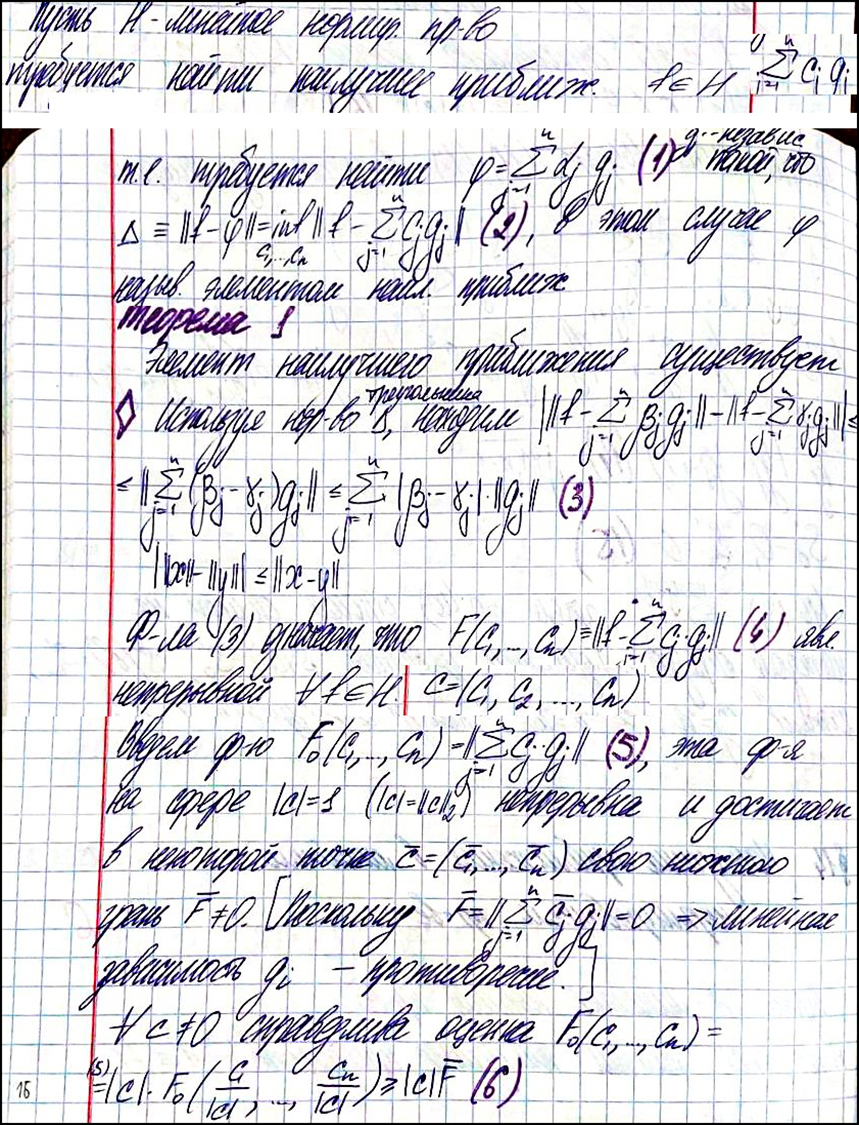 Пусть H - линейное нормир. пр-во
требуется найти наилучшее приближ. f ∈ H ∑_{j=1}^{n} c_j g_j
g_j - независ
т.е. требуется найти φ = ∑_{j=1}^{n} α_j g_j (1) такой, что
Δ ≡ ||f - φ|| = inf_{c_1,...,c_n} ||f - ∑_{j=1}^{n} c_j g_j|| (2), в этом случае φ
назыв. элементом наил. приближ
Теорема 1
Элемент наилучшего приближения существует
◊ Используя нер-во Δ, треугольника находим | ||f - ∑_{j=1}^{n} β_j g_j|| - ||f - ∑_{j=1}^{n} γ_j g_j|| | ≤
≤ ||∑_{j=1}^{n} (β_j - γ_j) g_j|| ≤ ∑_{j=1}^{n} |β_j - γ_j| · ||g_j|| (3)
| ||x|| - ||y|| | ≤ ||x - y||
Ф-ла (3) означает, что F(c_1, ..., c_n) ≡ ||f - ∑_{j=1}^{n} c_j g_j|| (4) явл.
непрерывной ∀ f ∈ H. | c = (c_1, c_2, ..., c_n)
Введем ф-ю F_0(c_1, ..., c_n) = ||∑_{j=1}^{n} c_j · g_j|| (5), эта ф-я
на сфере |c| = 1 (|c| = ||c||_2) непрерывна и достигает
в некоторой точке c̄ = (c̄_1, ..., c̄_n) свою нижнюю
грань F̄ ≠ 0. [Поскольку F̄ = ||∑_{j=1}^{n} c̄_j g_j|| = 0 => линейная
зависимость g_i - противоречие.]
∀ c ≠ 0 справедлива оценка F_0(c_1, ..., c_n) =
(5) = |c| · F_0(c/|c|, ..., c_n/|c|) ≥ |c| F̄ (6)
16